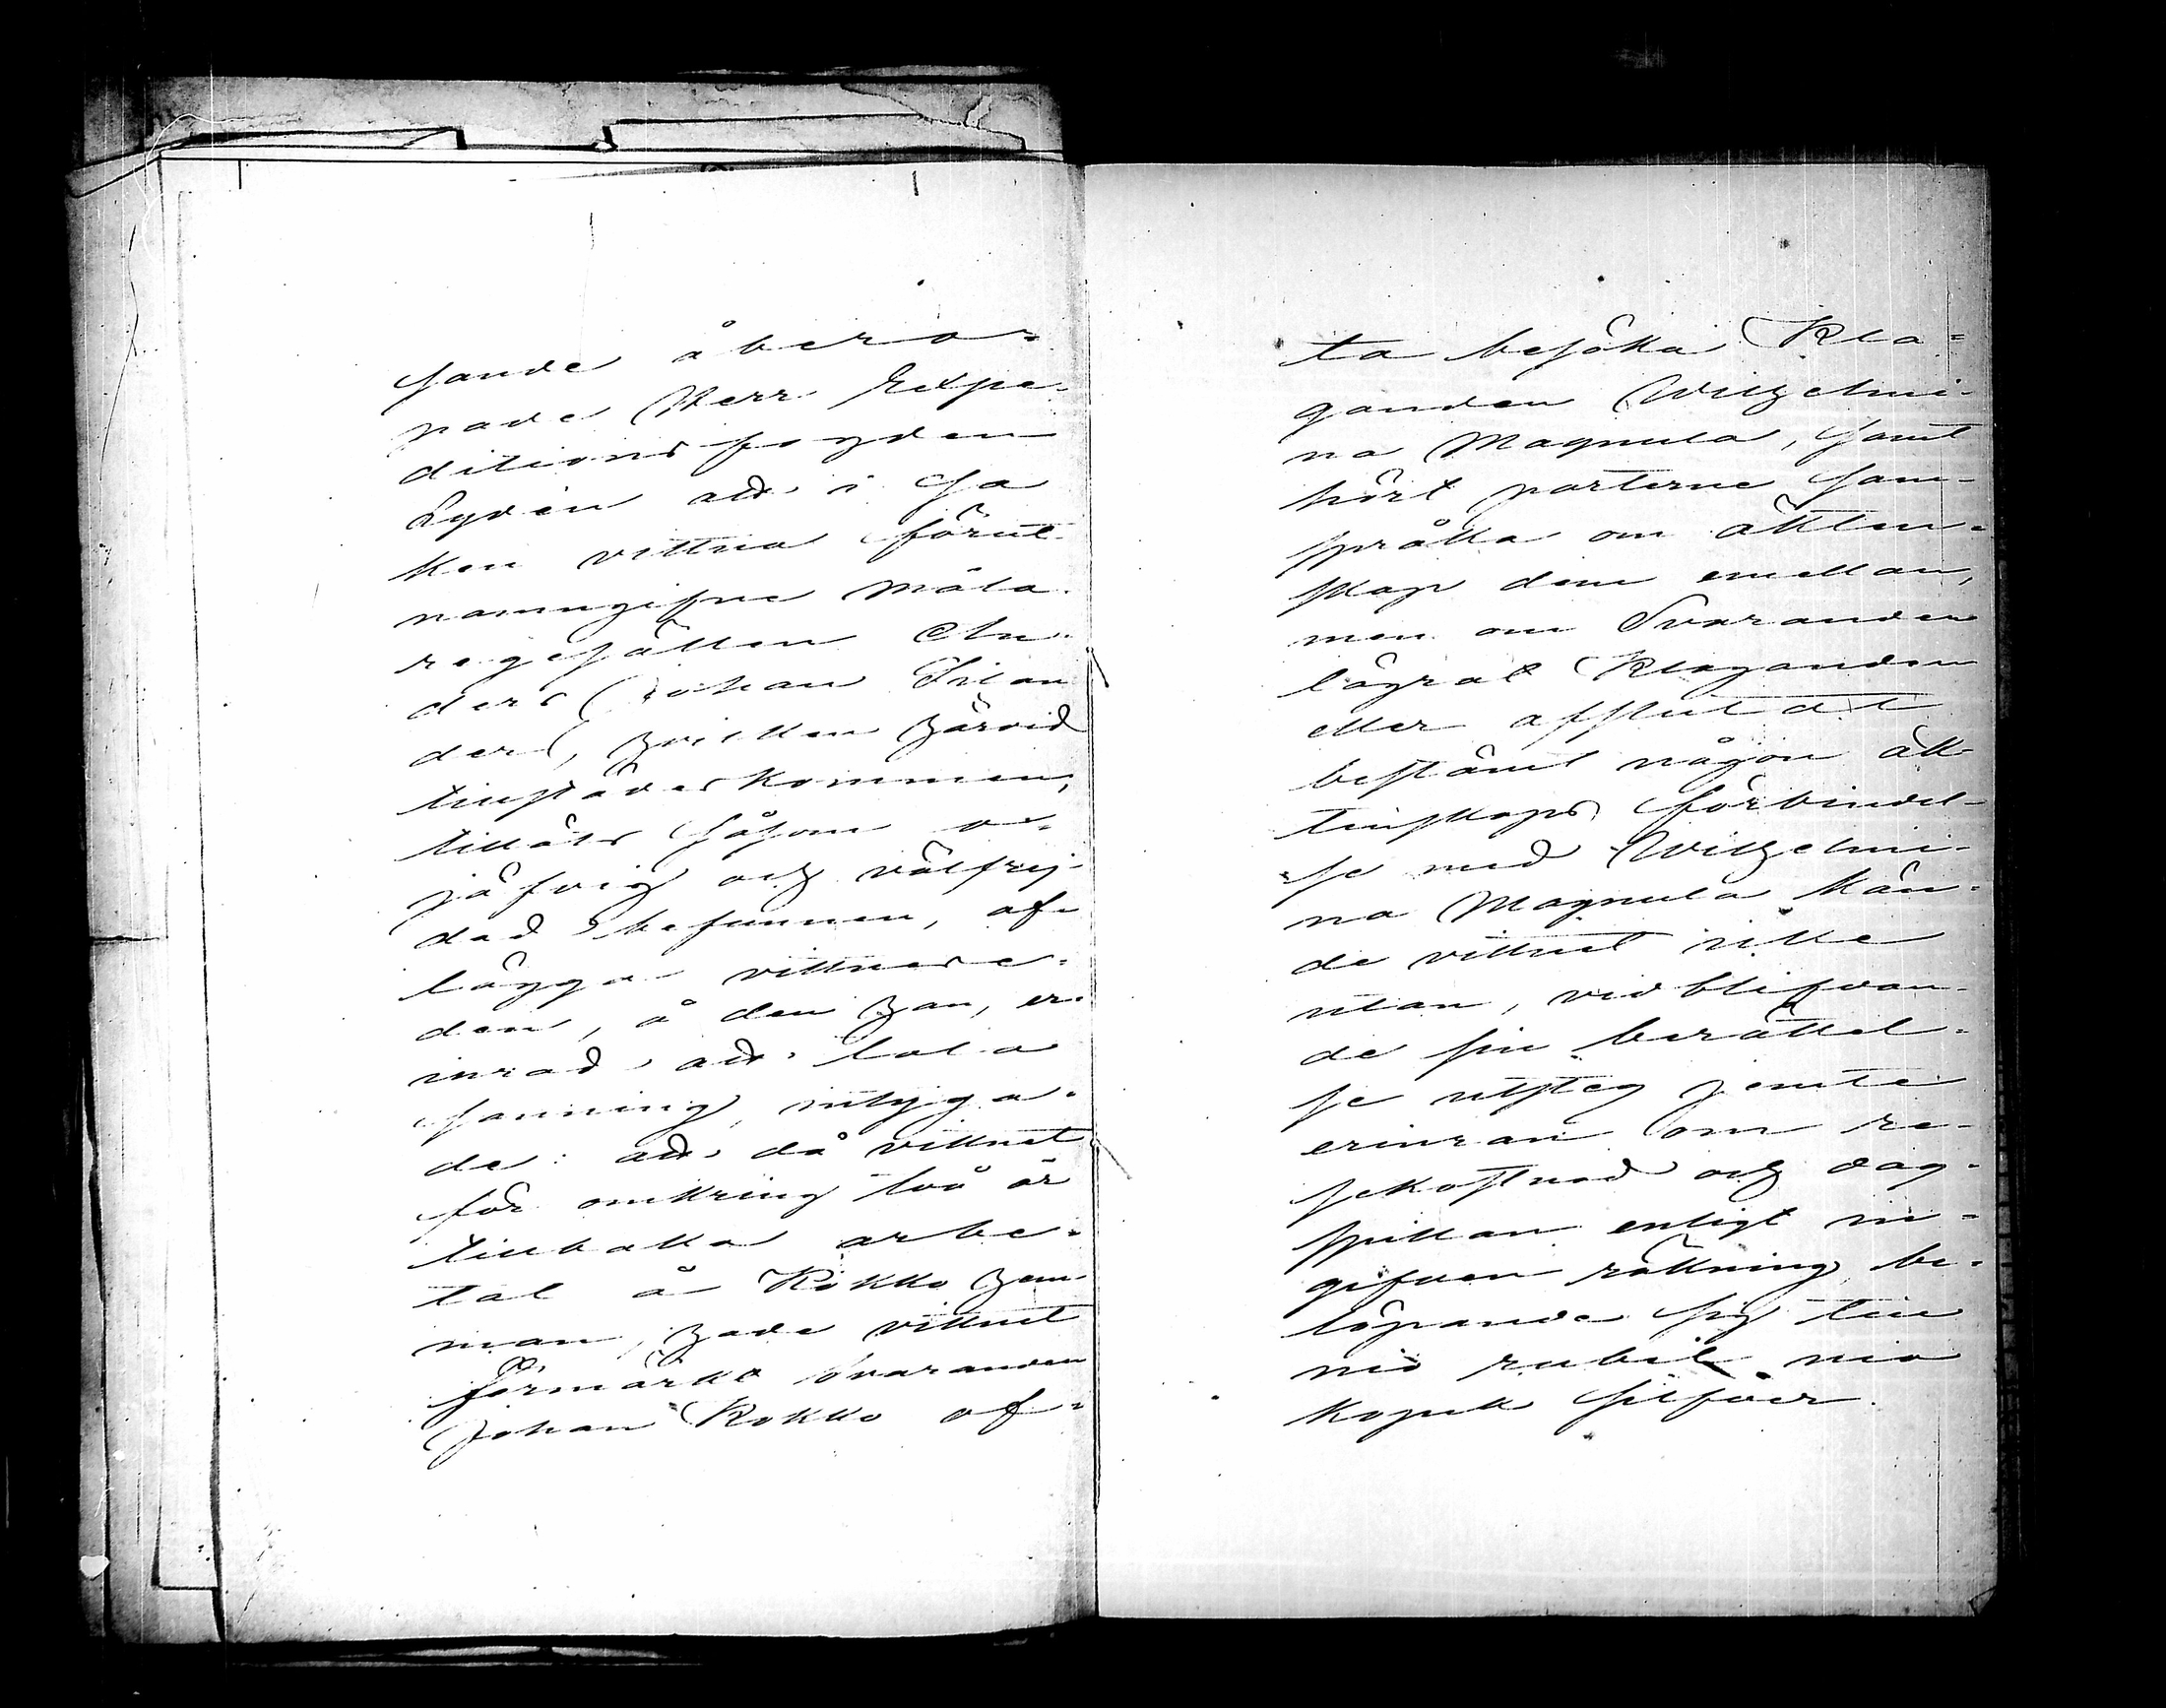 sande åbero-
pade Herr Expe-
ditionsfogden
Lydén att i sa
ken vittna förut-
namngifne måla-
regesällen An-
ders Johan Filan
der, hvilken härvid
tillstädeskommen,
tilläts såsom o-
jäfvig och välfrej-
dad befunnen, af-
lägga vittnese-
den, å den han, er-
inrad att tala
sanning, intyga-
de: att då vittnet
för omkring två år
tillbaka arbe-
tat å Rokko hem-
man, hade vittnet
förmärkt Svaranden
Johan Rokko of-
ta besöka Kla-
ganden Wilhelmi-
na Magnula, samt
hört parterne sam-
språka om äkten-
skap dem emellan,
men om Svaranden
lägrat Klaganden
eller afslutat
bestämt någon äk-
tenskaps förbindel-
se med Wilhelmi-
na Magnula kän-
de vittnet icke
utan, vid blifvan-
de sin berättel-
se utsteg jemte
erinran om re-
sekostnad och dag-
spillan enligt in-
gifven räkning, be-
löpande sig till
nio rubel nio
kopek silfver.